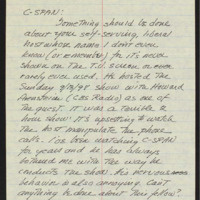 C-SPAN:
Something should be done
about your self-serving, liberal
host whose name I don't even
know (or remember) for it's never
shown on the T.V. screen or even
rarely ever used. He hosted the
Sunday 9/7/97 show with Howard
(CBS Radio) as one of
the guest. It was a
hour show. It's upsetting to watch
the host manipulate the phone
calls. I've been watching C-SPAN
for years and he has always
bothered me with the way he
conducts the show. His nervous
behavior is also annoying. Can't
anything be done about this fellow?